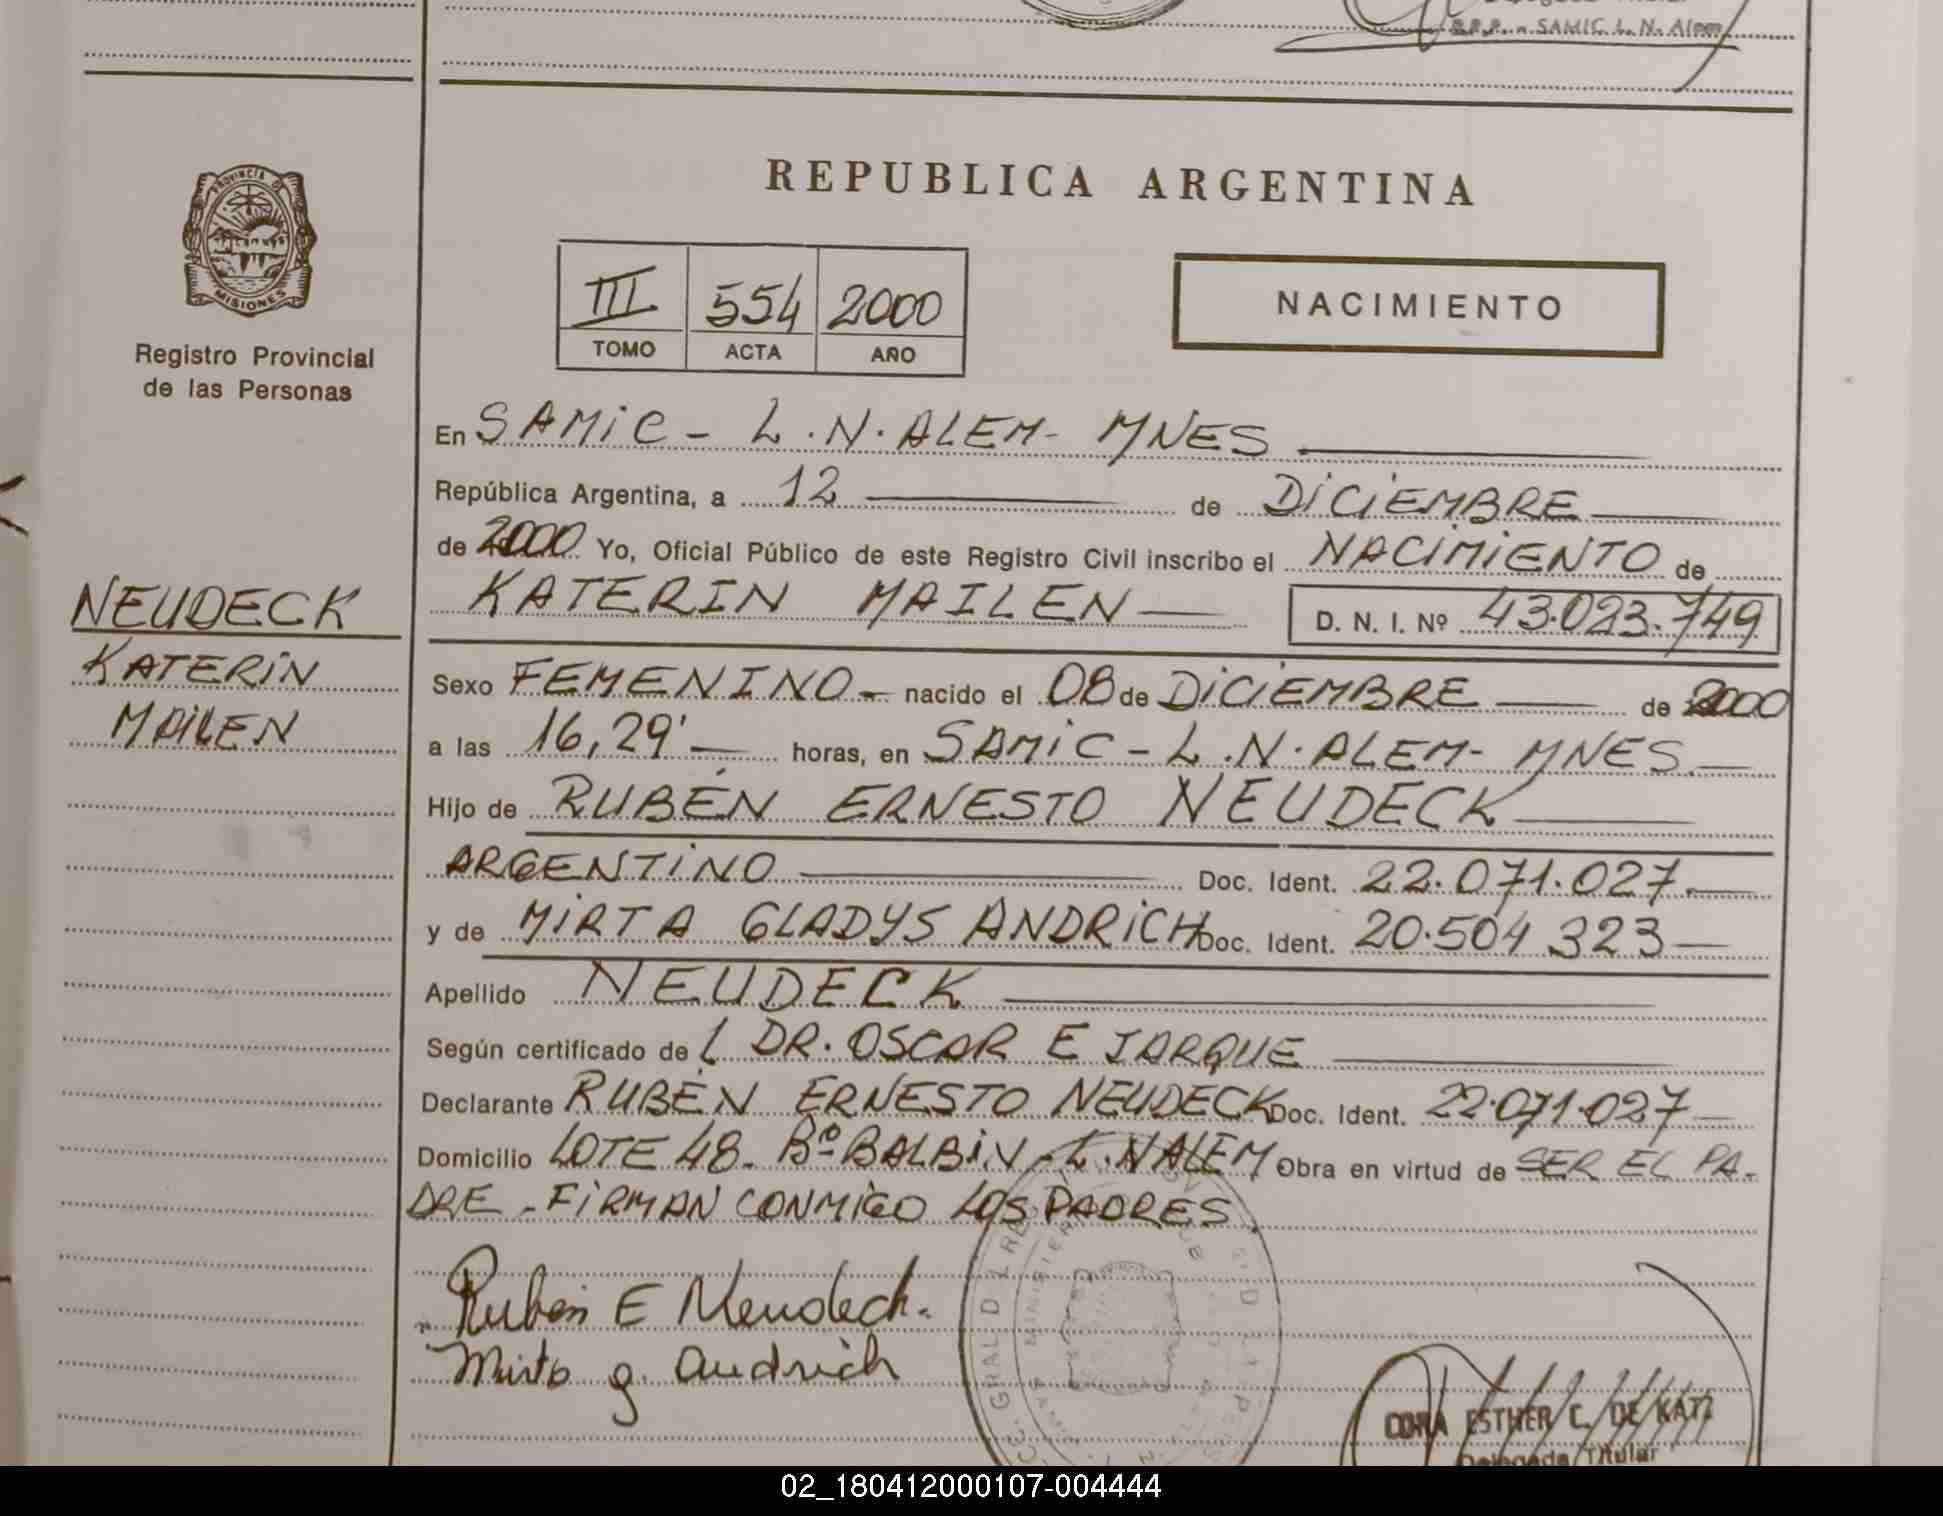 B.P.P. - SAMIC. L. N. Alem
PROVINCIA DE
MISIONES
Registro Provincial
de las Personas
REPUBLICA ARGENTINA
III 554 2000
TOMO ACTA AÑO
NACIMIENTO
En SAMIC - L.N. ALEM - MNES
República Argentina, a 12 de DICIEMBRE
de 2000 Yo, Oficial Público de este Registro Civil inscribo el NACIMIENTO de
KATERIN MAILEN D. N. I. Nº 43.023.749
NEUDECK
KATERIN
MAILEN
Sexo FEMENINO - nacido el 08 de DICIEMBRE de 2000
a las 16,29' horas, en SAMIC - L.N. ALEM - MNES
Hijo de RUBÉN ERNESTO NEUDECK
ARGENTINO Doc. Ident. 22.071.027
y de MIRTA GLADYS ANDRICH Doc. Ident. 20.504.323
Apellido NEUDECK
Según certificado de L DR. OSCAR E JARQUE
Declarante RUBÉN ERNESTO NEUDECK Doc. Ident. 22.071.027
Domicilio LOTE 48 - Bº BALBIN - L.N ALEM Obra en virtud de SER EL PA-
DRE - FIRMAN CONMIGO LOS PADRES.
Ruben E Neudeck.
Mirta g. Andrich
CORA ESTHER C. DE KATZ
Delegada Titular
02_180412000107-004444